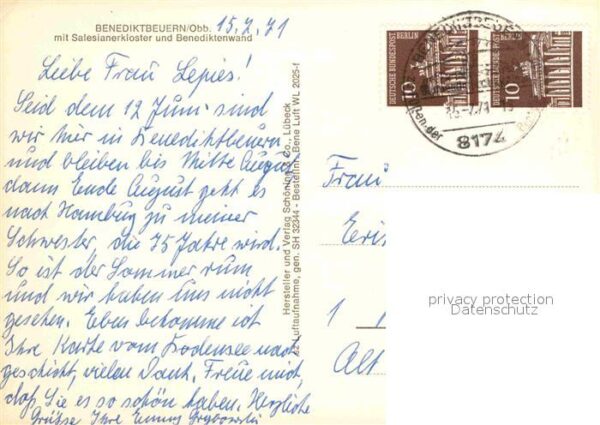 BENEDIKTBEUERN/Obb. 15.7.71
mit Salesianerkloster und Benediktenwand
Liebe Frau Lepies!
Seid dem 12 Juni sind
wir hier in Benediktbeuern
und bleiben bis Mitte August
dann Ende August geht es
nach Hamburg zu meiner
Schwester, die 75 Jahre wird.
So ist der Sommer rum
und wir haben uns nicht
gesehen. Eben bekomme ich
Ihre Karte vom Bodensee nach
geschickt, vielen Dank. Freue mich,
daß Sie es so schön haben. Herzliche
Grüsse Ihre Emmy Grabowski
Hersteller und Verlag Schöning & Co., Lübeck
Luftaufnahme, gen. SH 32344 - Bestellnr. Bene Luft WL 2025-f
DEUTSCHE BUNDESPOST
BERLIN
10
DEUTSCHE BUNDESPOST
BERLIN
10
8174
Frau
Eri
1
Alt
privacy protection
Datenschutz